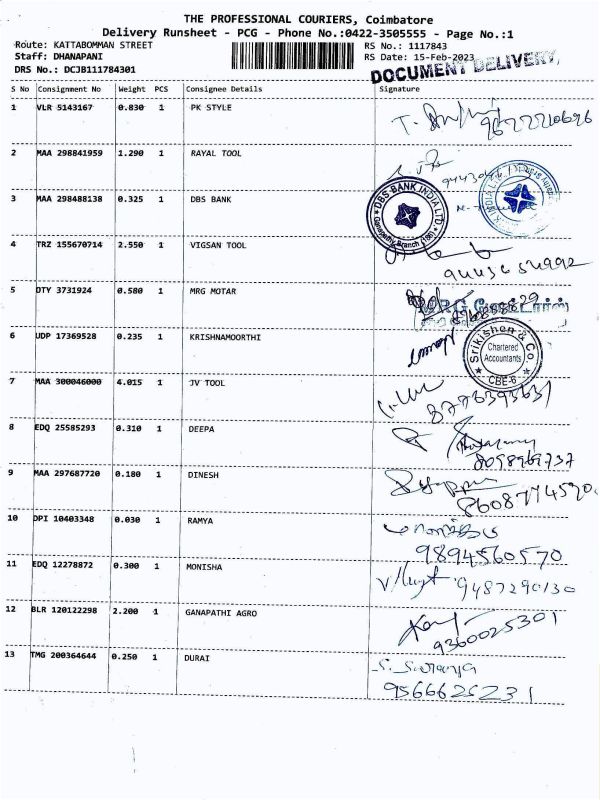 THE PROFESSIONAL COURIERS, Coimbatore
Delivery Runsheet - PCG - Phone No.:0422-3505555 - Page No.:1
Route: KATTABOMMAN STREET RS No.: 1117843
Staff: DHANAPANI RS Date: 15-Feb-2023
DRS No.: DCJB111784301 DOCUMENT DELIVERY,
S No Consignment No Weight PCS Consignee Details Signature
1 VLR 5143167 0.830 1 PK STYLE
2 MAA 298841959 1.290 1 RAYAL TOOL
3 MAA 298488138 0.325 1 DBS BANK
DBS BANK INDIA LTD
4 TRZ 155670714 2.550 1 VIGSAN TOOL
5 DTY 3731924 0.580 1 MRG MOTAR
MRG மோட்டார்ஸ்
6 UDP 17369528 0.235 1 KRISHNAMOORTHI
Srikishen & Co.
Chartered
Accountants
CBE-6
7 MAA 300046000 4.015 1 JV TOOL
8 EDQ 25585293 0.310 1 DEEPA
8098969737
9 MAA 297687720 0.180 1 DINESH
8608774590
10 DPI 10403348 0.030 1 RAMYA
9894560570
11 EDQ 12278872 0.300 1 MONISHA
9487290130
12 BLR 120122298 2.200 1 GANAPATHI AGRO
9360025301
13 TMG 200364644 0.250 1 DURAI
S. Saranya
9566625231